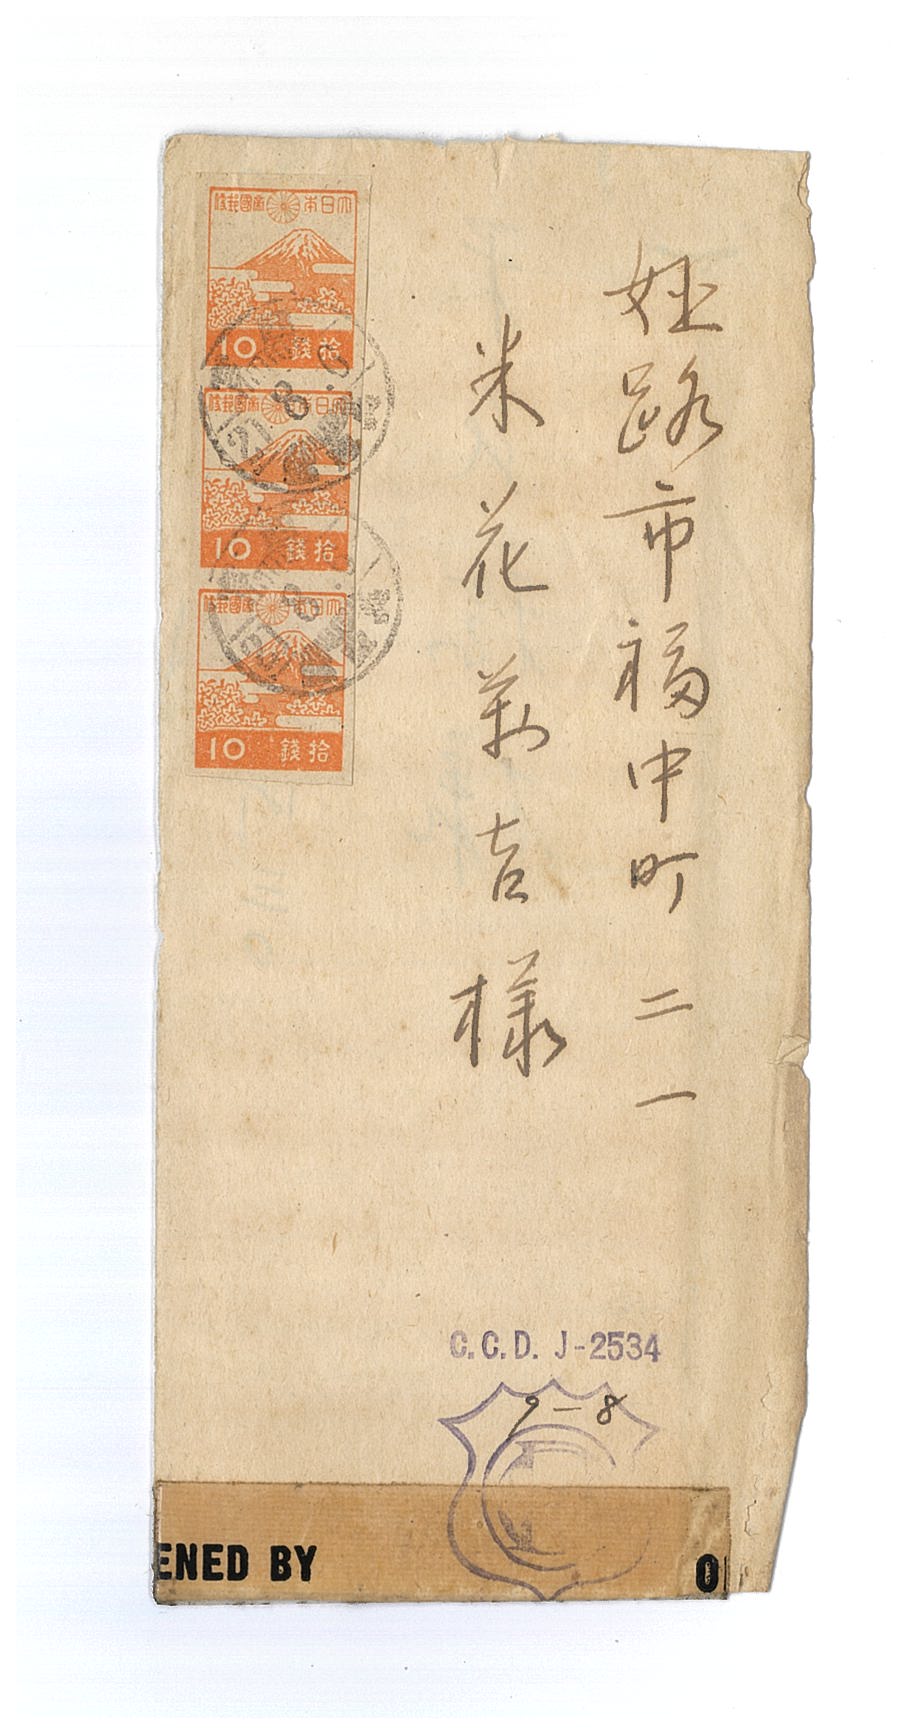 姫路市福中町二一
米花萬吉様
大日本帝國郵便
拾錢 10
大日本帝國郵便
拾錢 10
大日本帝國郵便
拾錢 10
C.C.D. J-2534
9-8
ENED BY
O